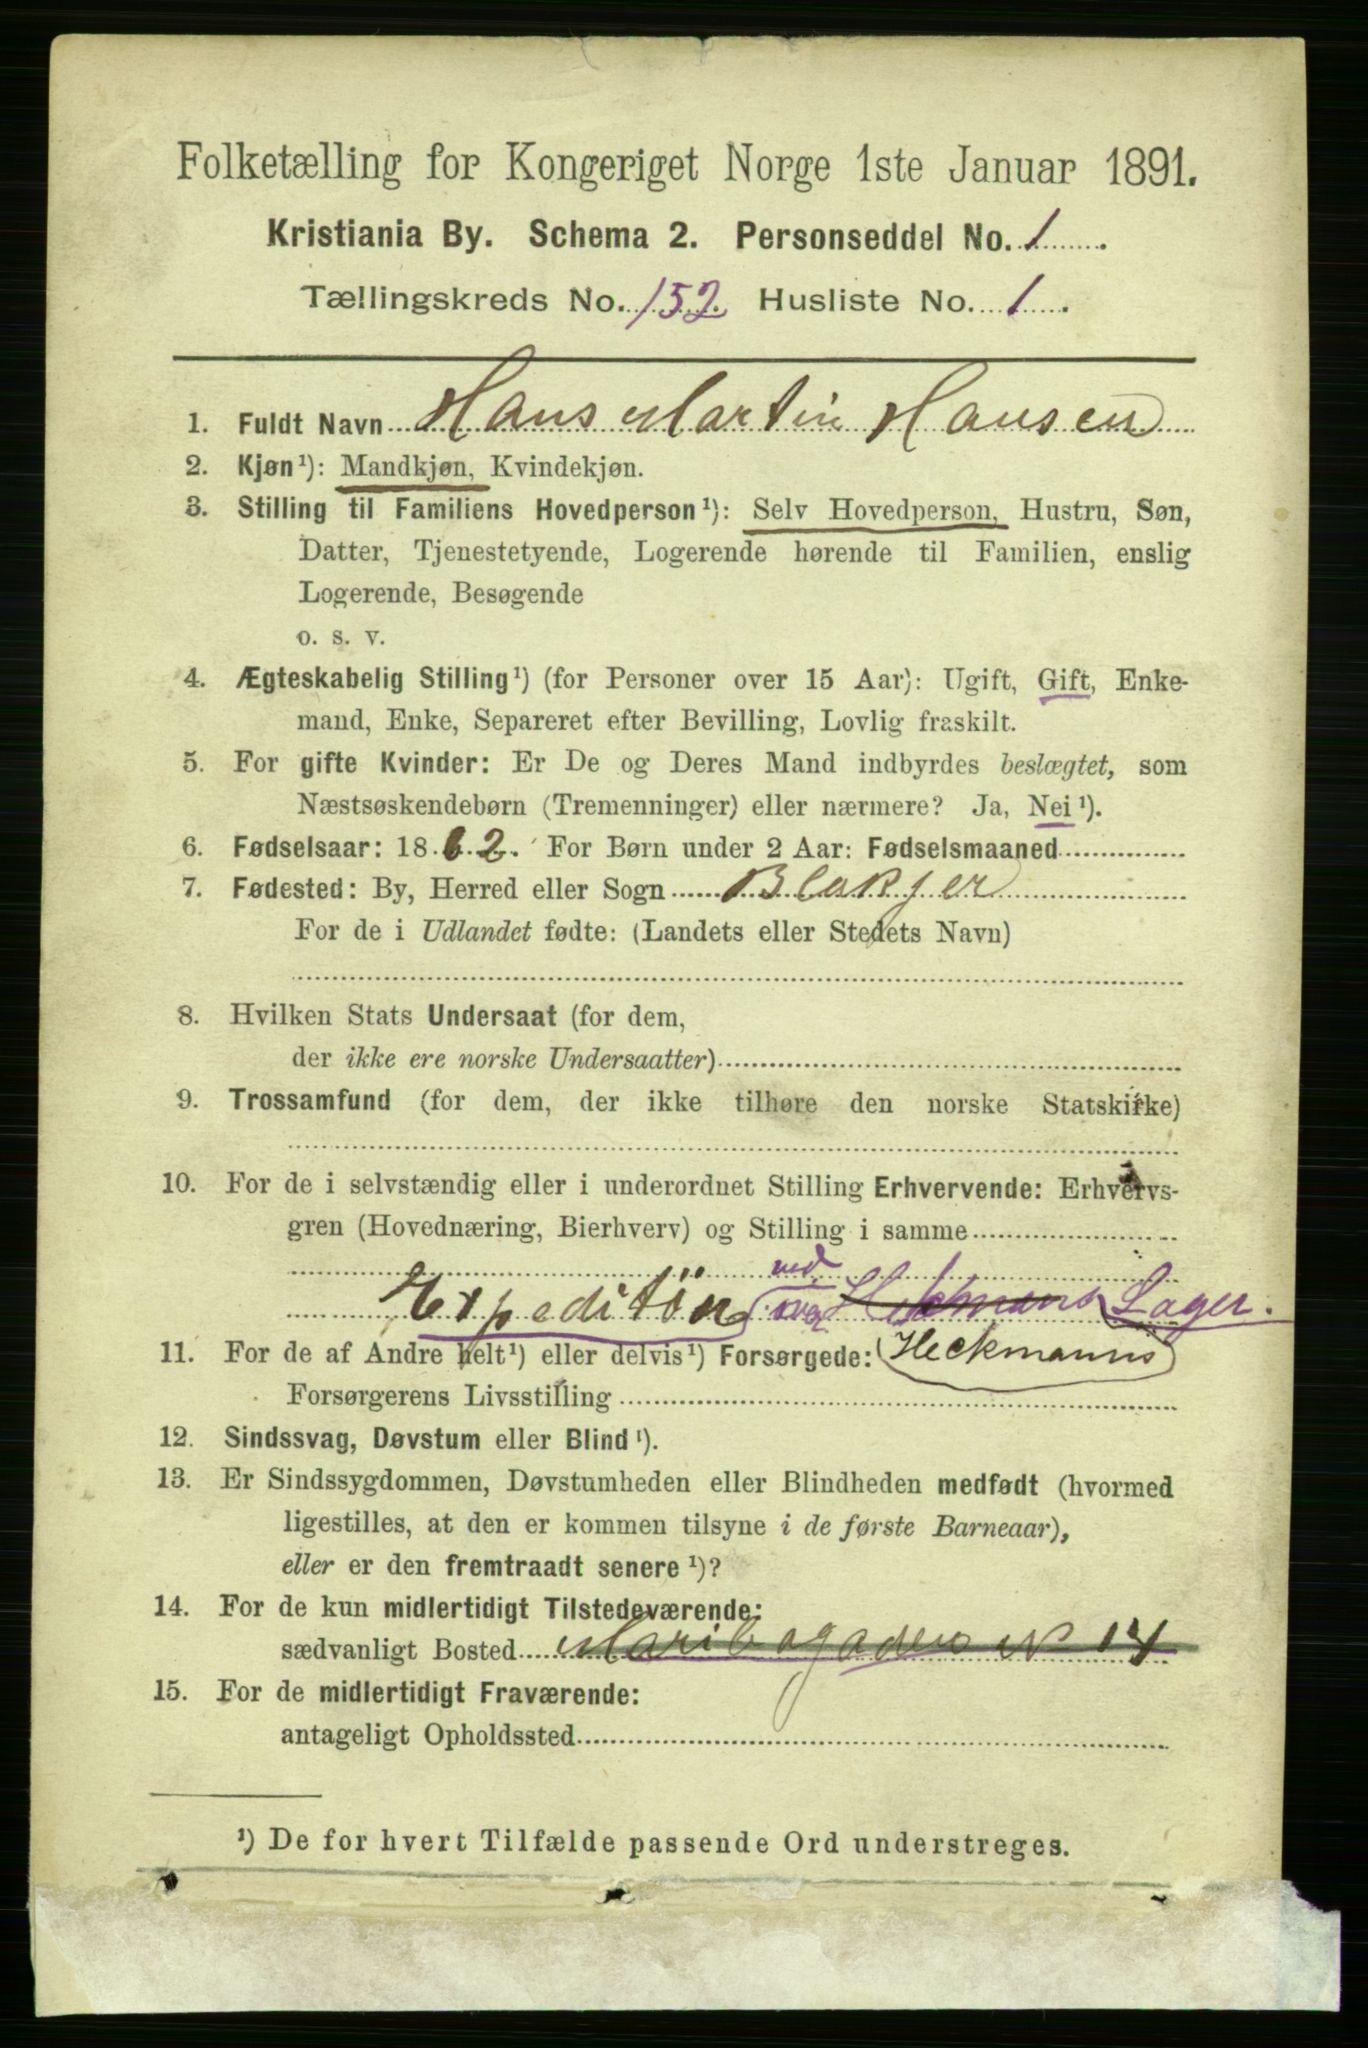 Folketælling for Kongeriget Norge 1ste Januar 1891.
Kristiania By. Schema 2. Personseddel No. 1.
Tællingskreds No. 152. Husliste No. 1.
1. Fuldt Navn Hans Martin Hansen
2. Kjøn¹): Mandkjøn, Kvindekjøn.
3. Stilling til Familiens Hovedperson¹): Selv Hovedperson, Hustru, Søn,
Datter, Tjenestetyende, Logerende hørende til Familien, enslig
Logerende, Besøgende
o. s. v.
4. Ægteskabelig Stilling¹) (for Personer over 15 Aar): Ugift, Gift, Enke-
mand, Enke, Separeret efter Bevilling, Lovlig fraskilt.
5. For gifte Kvinder: Er De og Deres Mand indbyrdes beslægtet, som
Næstsøskendebørn (Tremenninger) eller nærmere? Ja, Nei¹).
6. Fødselsaar: 1862. For Børn under 2 Aar: Fødselsmaaned
7. Fødested: By, Herred eller Sogn Blakjer
For de i Udlandet fødte: (Landets eller Stedets Navn)
8. Hvilken Stats Undersaat (for dem,
der ikke ere norske Undersaatter)
9. Trossamfund (for dem, der ikke tilhøre den norske Statskirke)
10. For de i selvstændig eller i underordnet Stilling Erhvervende: Erhvervs-
gren (Hovednæring, Bierhverv) og Stilling i samme
ved
Expeditör Hekmans Lager.
11. For de af Andre helt¹) eller delvis¹) Forsørgede: Heckmanns
Forsørgerens Livsstilling
12. Sindssvag, Døvstum eller Blind¹).
13. Er Sindssygdommen, Døvstumheden eller Blindheden medfødt (hvormed
ligestilles, at den er kommen tilsyne i de første Barneaar),
eller er den fremtraadt senere¹)?
14. For de kun midlertidigt Tilstedeværende:
sædvanligt Bosted Maribogadens No 14
15. For de midlertidigt Fraværende:
antageligt Opholdssted
¹) De for hvert Tilfælde passende Ord understreges.